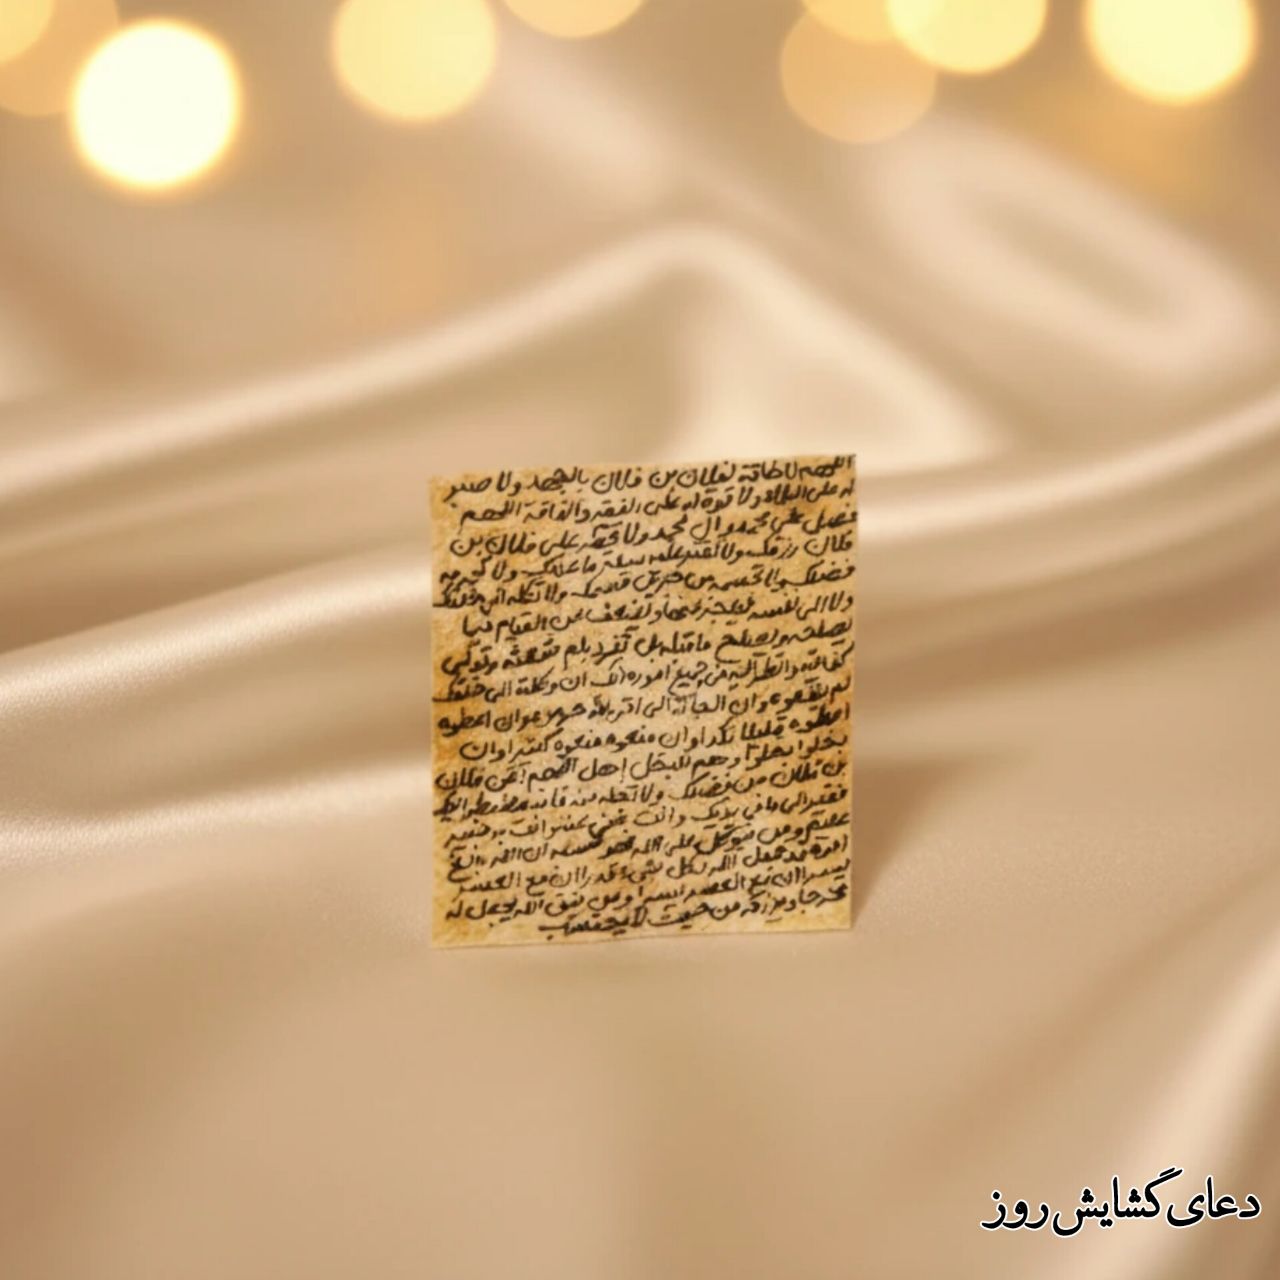 اللهم لا طاقة لفلان بن فلان بالجهد ولا صبر
له على البلاء ولا قوة له على الفقر والفاقة اللهم
فصل على محمد وال محمد ولا تحظر على فلان بن
فلان رزقك ولا تقتر عليه سعة ما عندك ولا تحرمه
فضلك ولا تحسمه من جزيل قسمك ولا تكله الى خلقك
ولا الى نفسه فيعجز عنها وتضعف عن القيام فيما
يصلحه ويصلح ما قبله بل تفرد بلم شعثه وتولى
كفايته وانظر اليه في جميع اموره انك ان وكلته الى خلقك
لم ينفعوه وان الجأته الى اقربائه حرموه وان اعطوه
اعطوه قليلا نكدا وان منعوه منعوه كثيرا وان
بخلوا بخلوا وهم للبخل اهل اللهم اغن فلان
بن فلان من فضلك ولا تخله منه فانه مضطر اليك
فقير الى ما في يديك وانت غني عنه وانت به خبير
عليم ومن يتوكل على الله فهو حسبه ان الله بالغ
امره قد جعل الله لكل شيء قدرا ان مع العسر
يسرا ان مع العسر يسرا ومن يتق الله يجعل له
مخرجا ويرزقه من حيث لا يحتسب
دعای گشایش روز